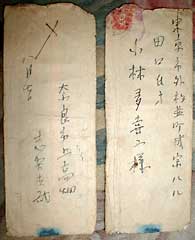 東京市外杉並町成宗八八
田口氏方
小林多喜二様
奈良市上高畑
志賀直哉
八月七日